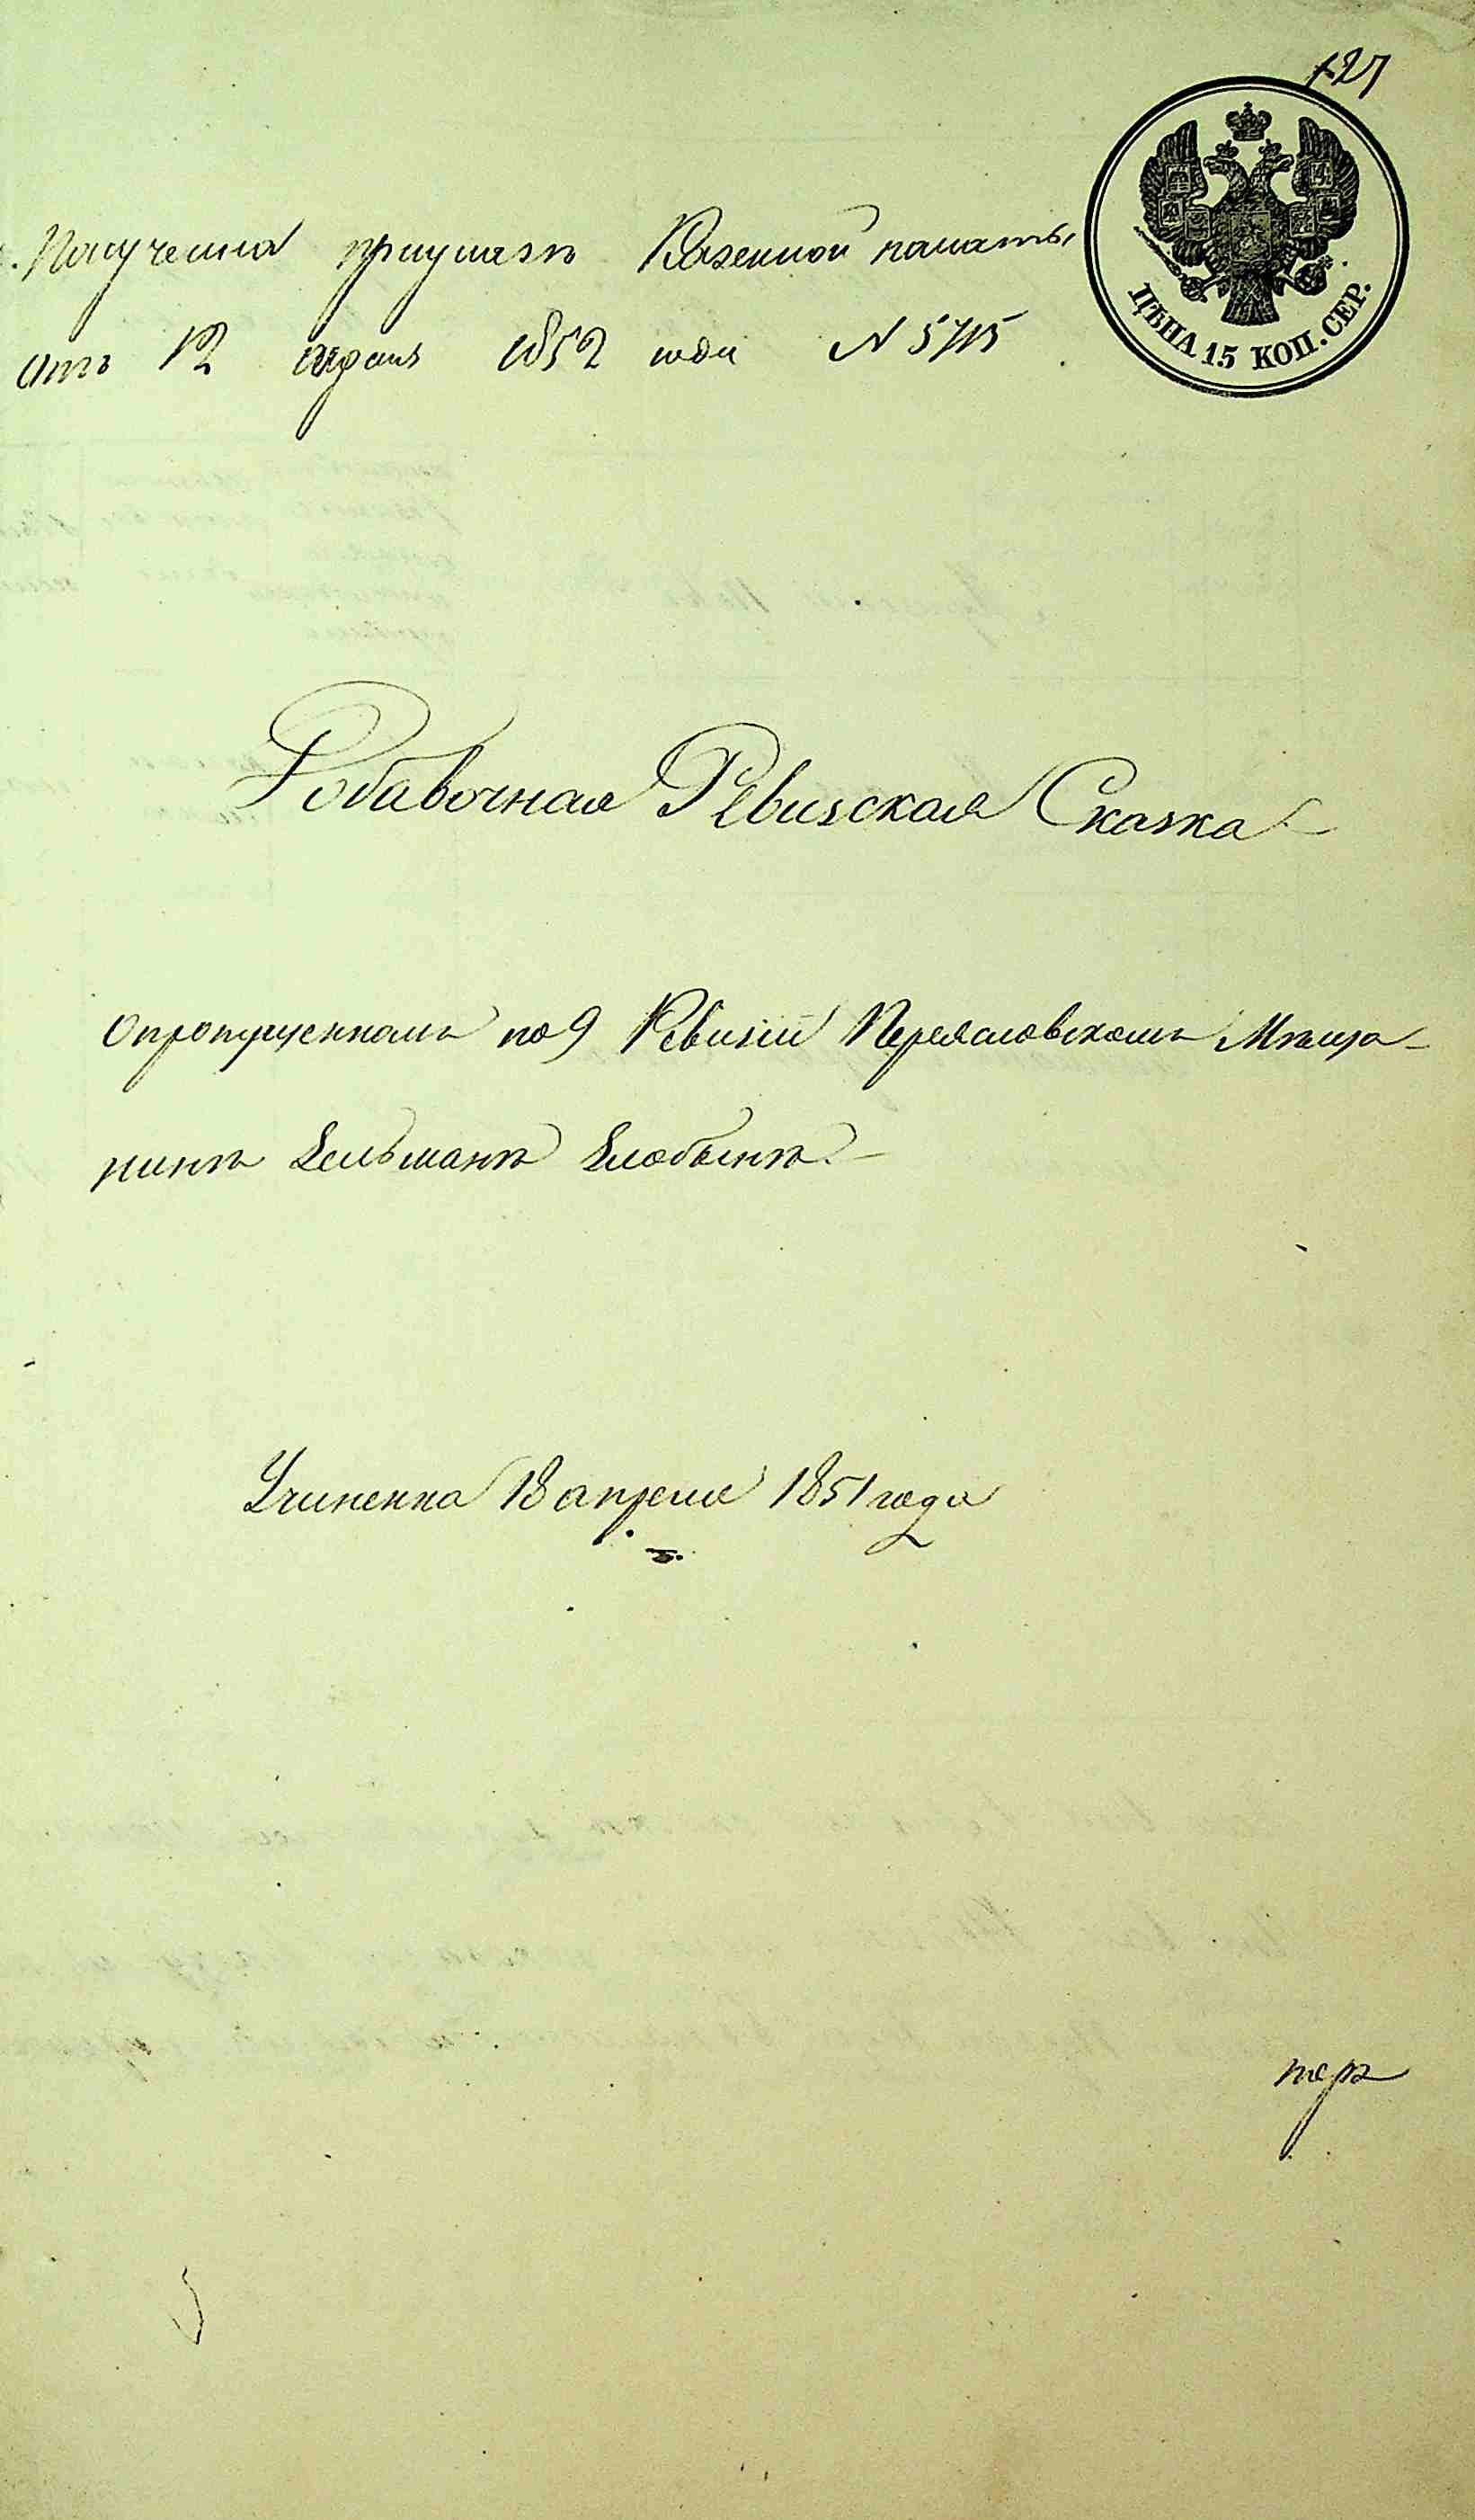 127
ЦѢНА 15 КОП. СЕР.
Получена приуказѣ Казенной палаты
отъ 12 апрѣля 1852 года N 5715
Добавочная Ревизская Сказка
Опропущенномъ по 9 Ревизіи Переяславскомъ Мѣща-
нинѣ
Учиненна 18 апреля 1851 года